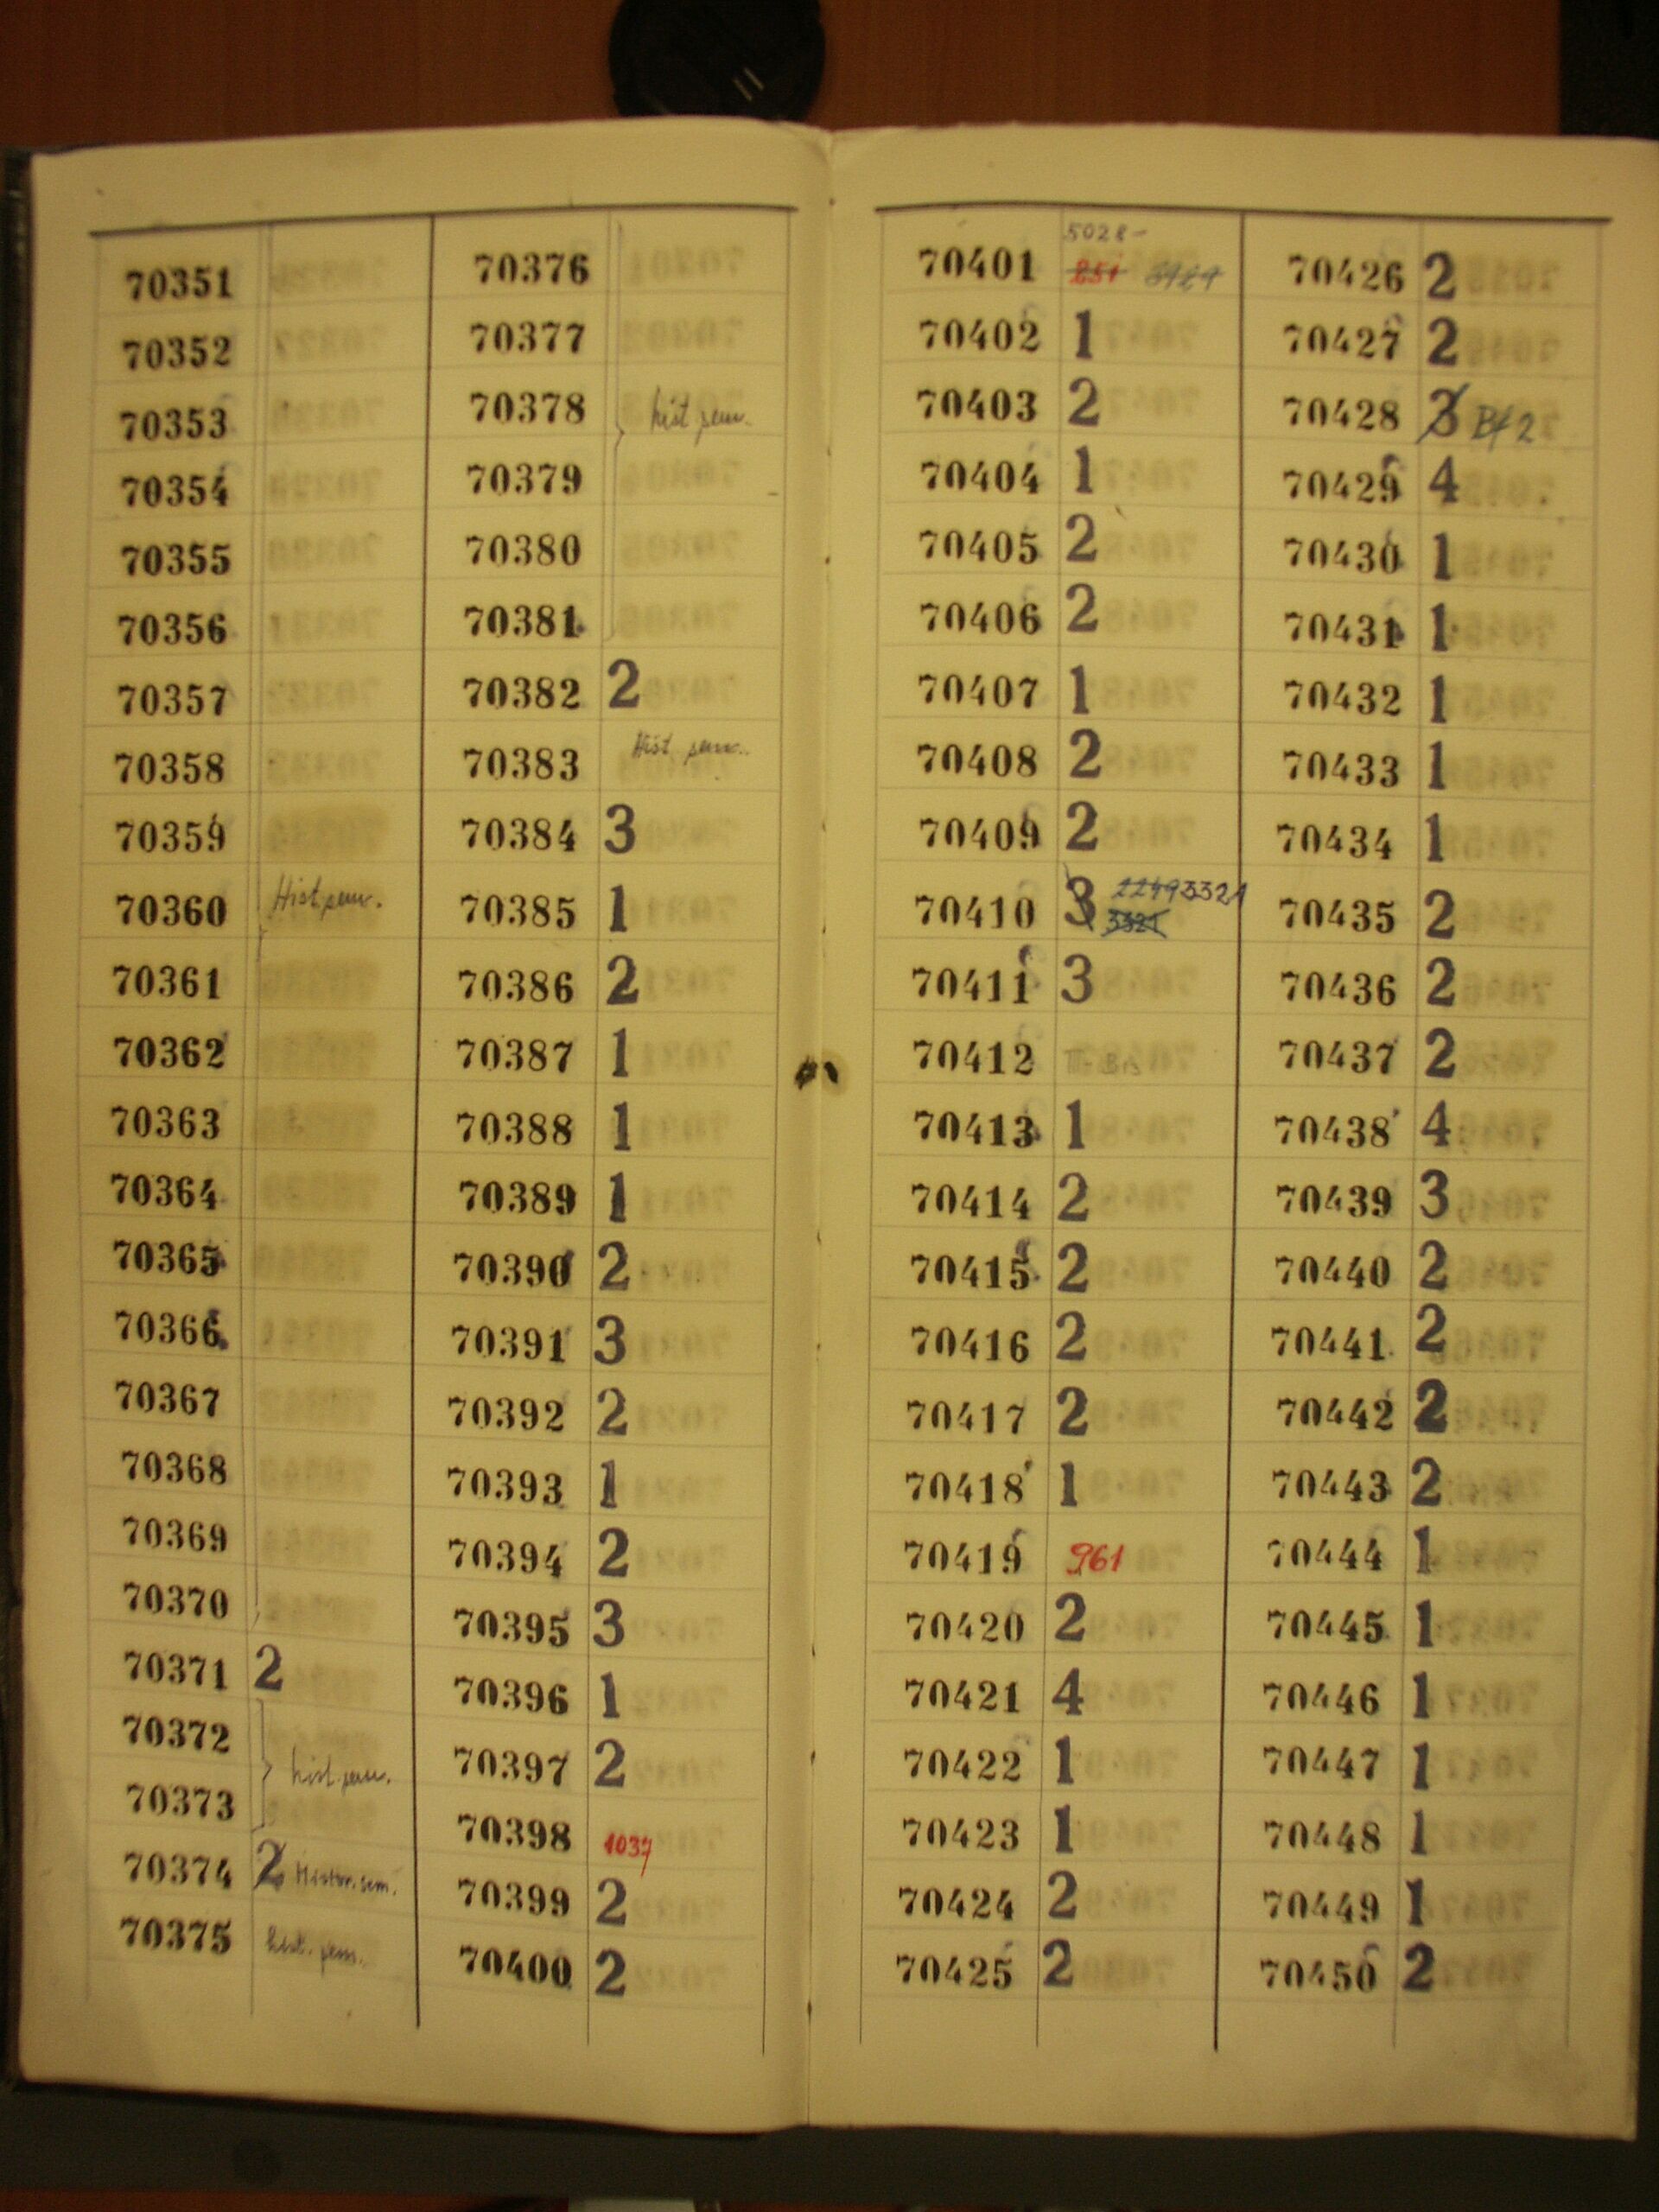 70351
70352
70353
70354
70355
70356
70357
70358
70359
70360 Hist. sem.
70361
70362
70363
70364
70365
70366
70367
70368
70369
70370
70371 2
70372
70373 hist. sem.
70374 2 Histor. sem.
70375 hist. sem.
70376
70377
70378 hist sem.
70379
70380
70381
70382 2
70383 Hist. sem.
70384 3
70385 1
70386 2
70387 1
70388 1
70389 1
70390 2
70391 3
70392 2
70393 1
70394 2
70395 3
70396 1
70397 2
70398 1037
70399 2
70400 2
5028-
70401 251
70402 1
70403 2
70404 1
70405 2
70406 2
70407 1
70408 2
70409 2
70410 3 2249 3321
3321
70411 3
70412 II-Bis
70413 1
70414 2
70415 2
70416 2
70417 2
70418 1
70419 961
70420 2
70421 4
70422 1
70423 1
70424 2
70425 2
70426 2
70427 2
70428 3 Bf 2
70429 4
70430 1
70431 1
70432 1
70433 1
70434 1
70435 2
70436 2
70437 2
70438 4
70439 3
70440 2
70441 2
70442 2
70443 2
70444 1
70445 1
70446 1
70447 1
70448 1
70449 1
70450 2